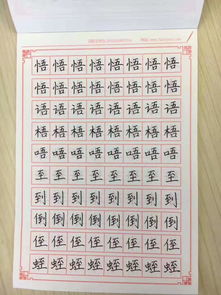 悟悟悟悟悟悟悟
悟悟悟悟悟悟悟
语语语语语语语
梧梧梧梧梧梧梧
唔唔唔唔唔唔唔
至至至至至至至
到到到到到到到
倒倒倒倒倒倒倒
侄侄侄侄侄侄侄
蛭蛭蛭蛭蛭蛭蛭